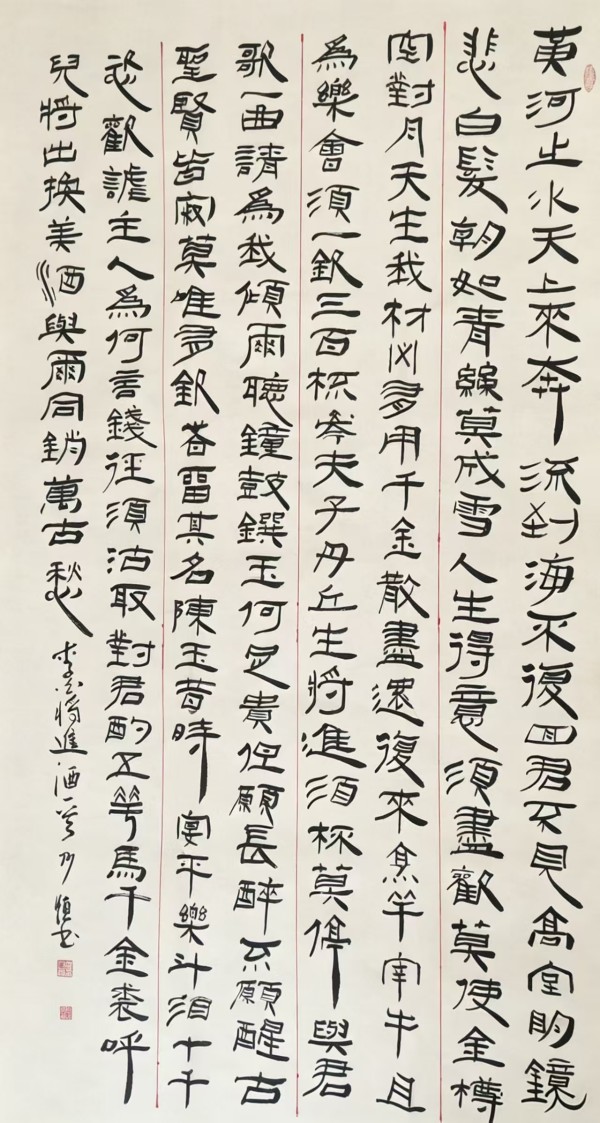 黃河之水天上來奔流到海不復回君不見高堂明鏡
悲白髮朝如青絲莫成雪人生得意須盡歡莫使金樽
空對月天生我材必多用千金散盡還復來烹羊宰牛且
為樂會須一飲三百杯岑夫子丹丘生將進須杯莫停與君
歌一曲請為我傾爾聽鐘鼓饌玉何足貴但願長醉不願醒古
聖賢皆寂莫唯多飲者留其名陳王昔時宴平樂斗須十千
恣歡謔主人為何言錢徑須沽取對君酌五花馬千金裘呼
兒將出換美酒與爾同銷萬古愁 李白將進酒一首